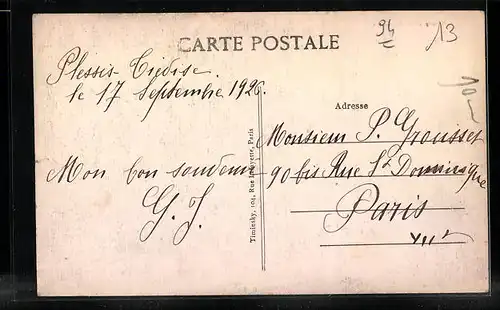 94 13
CARTE POSTALE
Plessis-Trévise.
le 17 Septembre 1926.
Mon bon souvenir
G. J.
Timinsky, 104, Rue Lafayette, Paris
Adresse
Monsieur P. Grousset
90 bis Rue St Dominique
Paris
VIIe